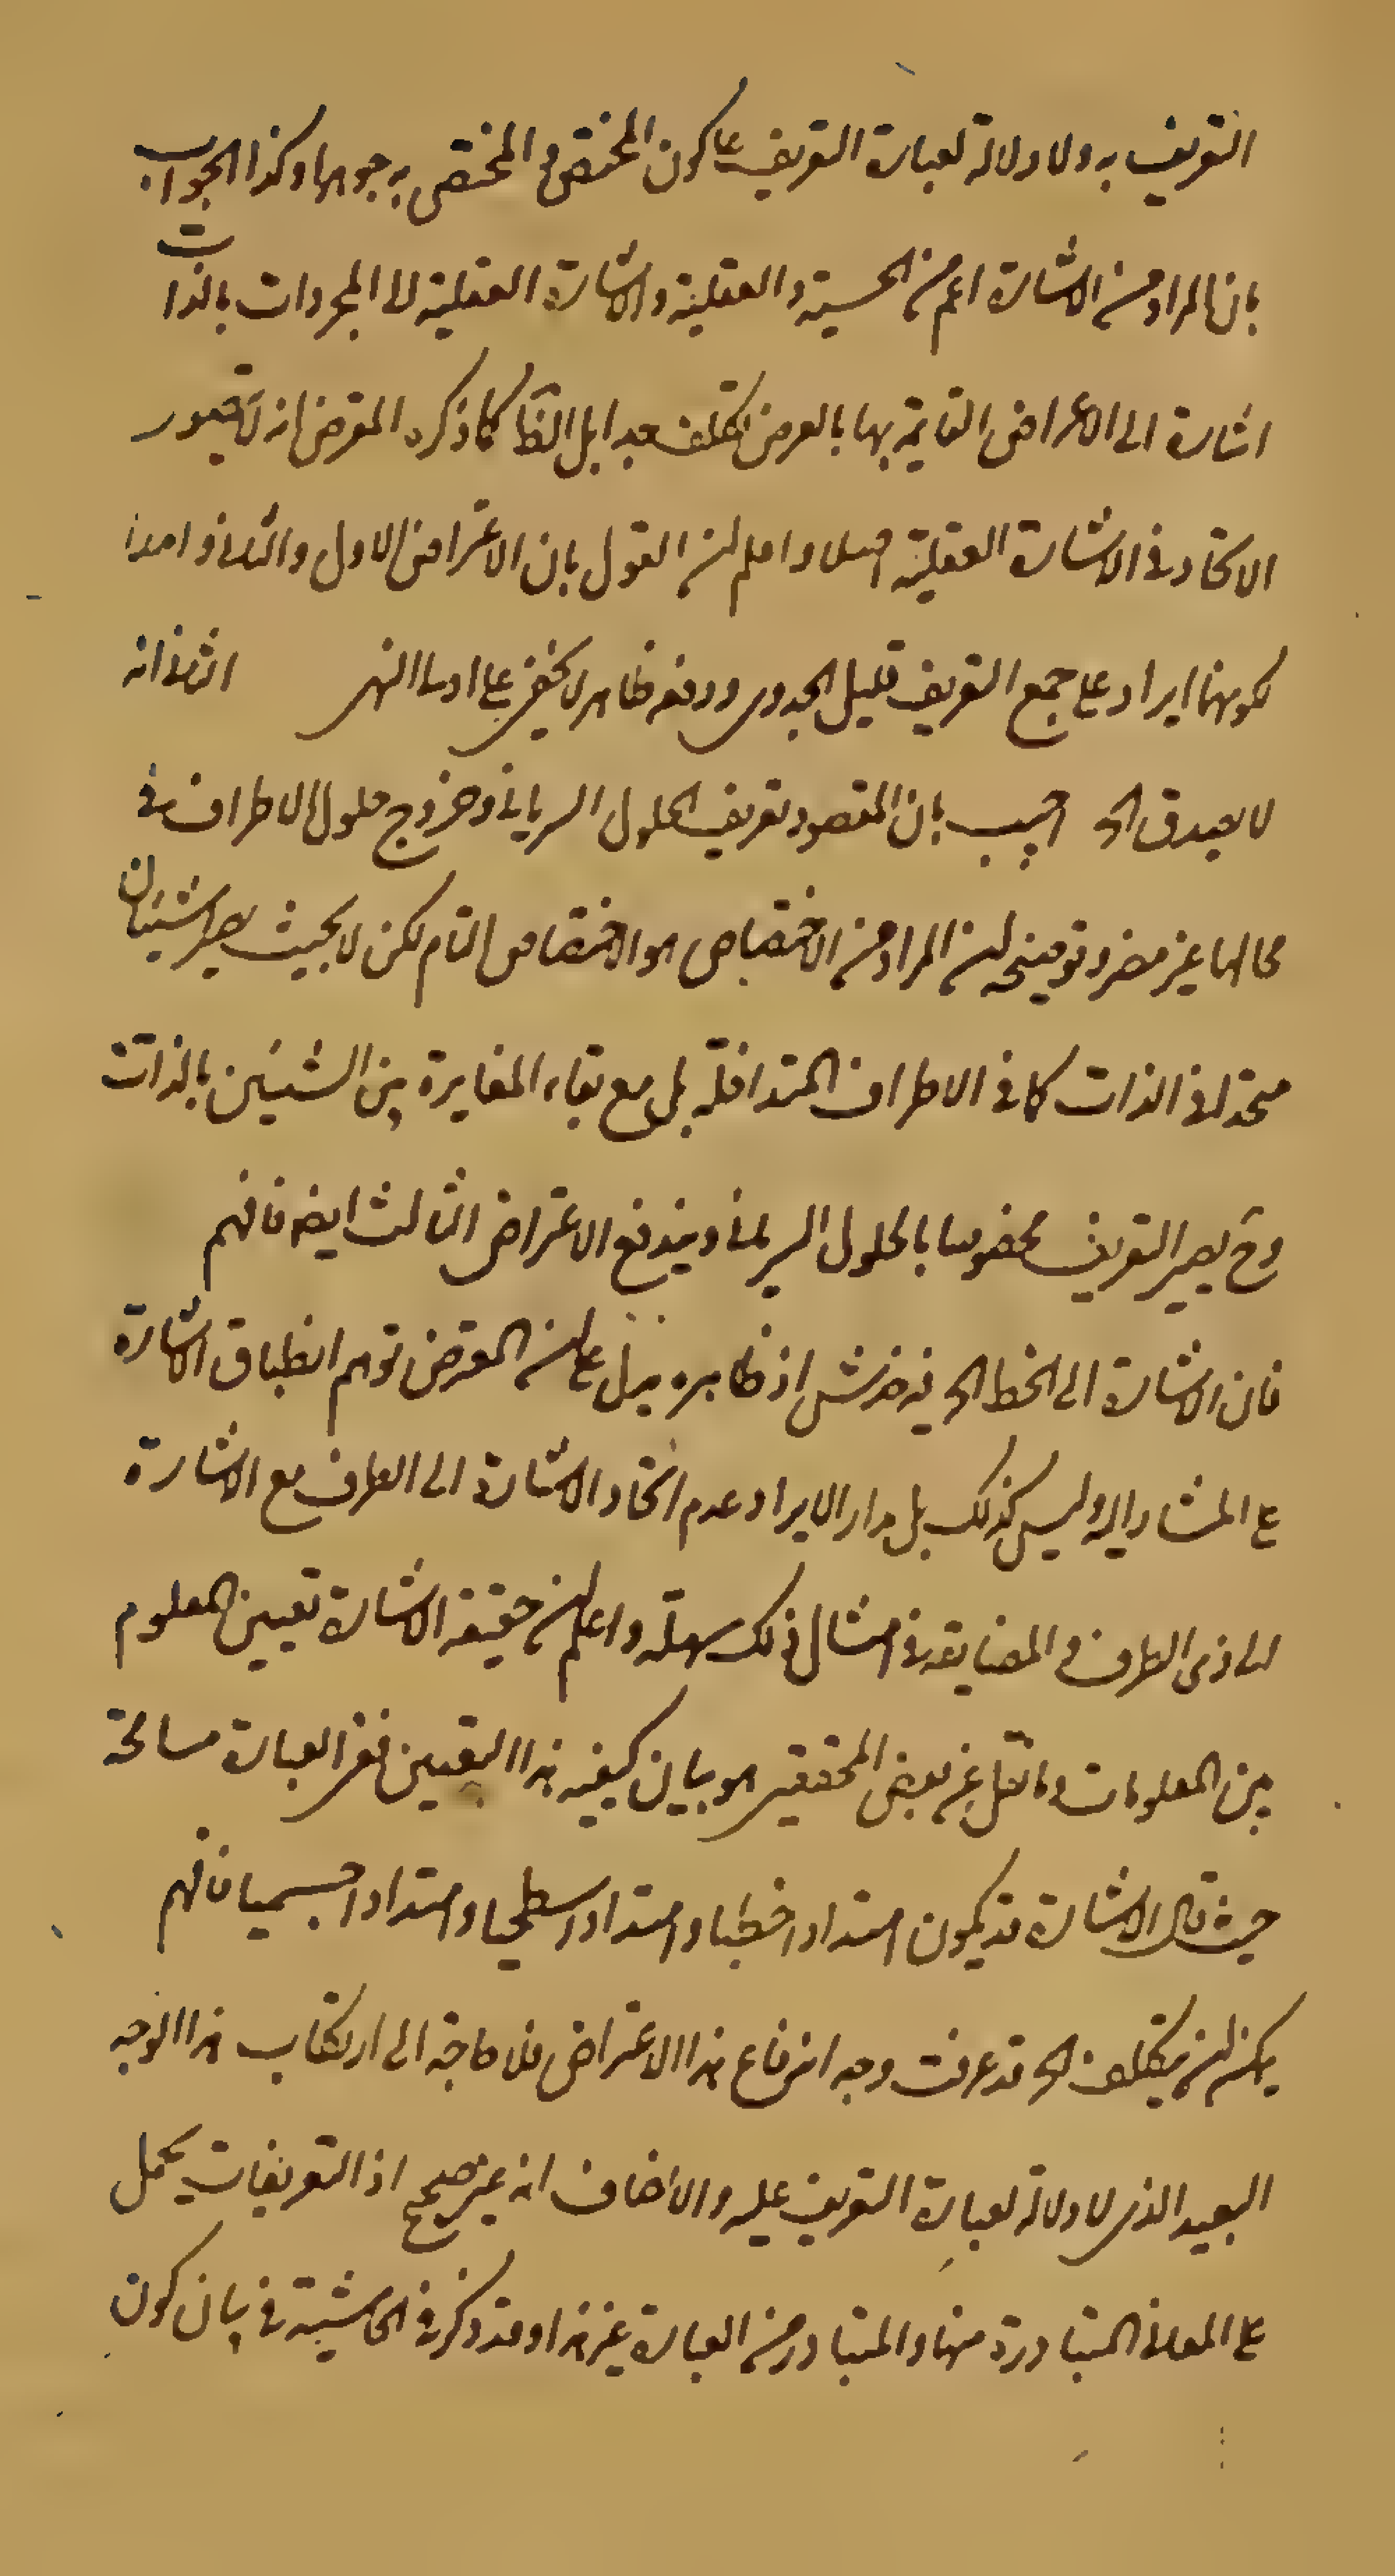 التعريف به ولا دلالة لعبارة التعريف على كون المختص والمختص به جوهرا وكذا الجواب
بان المراد من الاشارة اعم من الحسية والعقلية والاشارة العقلية الى المجردات بالذات
اشارة الى الاعراض القايمة بها بالعرض تكلف جدا بل الظ كما ذكره المعترض انه لا يتصور
الاتحاد في الاشارة العقلية اصلا واعلم ان القول بان الاعتراض الاول والثاني
لكونهما ايراد على جمع التعريف قليل الجدوى ودفعه ظاهر لا يخفى على اولى النهى الثاني انه
لا يصدق الخ اجيب بان المقصود تعريف الحلول السرياني وخروج حلول الاطراف في
محالها غير مضر وتوضيحه ان المراد من الاختصاص هو الاختصاص التام لكن لا بحيث يصير الشيئان
متحدا في الذات كما في الاطراف المتداخلة بل مع بقاء المغايرة بين الشيئين بالذات
وح يصير التعريف مخصوصا بالحلول السرياني ويندفع الاعتراض الثالث ايضه فافهم
فان الاشارة الى الخط الخ فيه خدش اذ ظاهره يدل على ان المعترض توهم انطباق الاشارة
على المشار اليه وليس كذلك بل مدار الايراد عدم اتحاد الاشارة الى الطرف مع الاشارة
الى ذى الطرف والمضايقه في امثال ذلك سهلة واعلم ان حقيقة الاشارة تعيين المعلوم
من المعلومات وما نقل عن بعض المحققين هو بيان كيفيه هذا التعيين ففى العبارة مسامحة
حيث قال الاشارة قد يكون امتدادا خطيا وامتدادا سطحيا وامتدادا جسميا فافهم
يمكن ان يتكلف الخ قد عرفت وجه اندفاع هذا الاعتراض فلا حاجة الى ارتكاب هذا الوجه
البعيد الذى لا دلالة لعبارة التعريف عليه والانصاف انه غير صحيح اذ التعريفات يحمل
على المعاني المتبادرة منها والمتبادر من العبارة غير هذا وقد ذكر في الحاشية في بيان كون